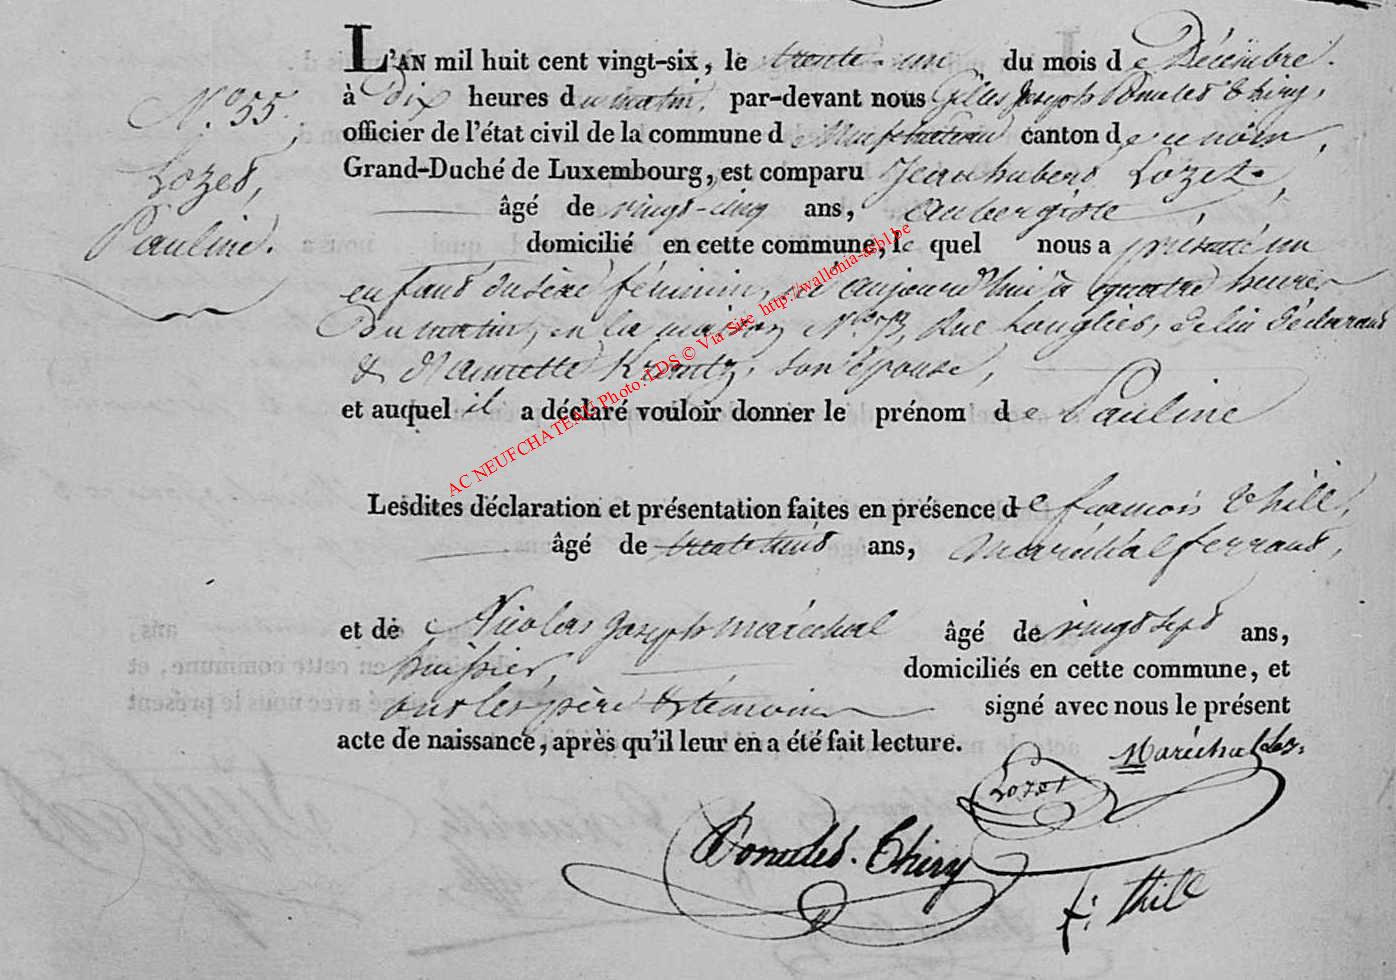 N.º 55.
Lozet,
Pauline.
L'AN mil huit cent vingt-six, le trente-un du mois de Décembre.
à dix heures du matin, par-devant nous Gilles Joseph Thiry,
officier de l'état civil de la commune de Neufchateau canton de
Grand-Duché de Luxembourg, est comparu Jean hubert Lozet,
âgé de vingt-cinq ans, aubergiste,
domicilié en cette commune, le quel nous a présenté un
enfant du sèxe féminin, né aujourd'hui à quatre heures
du matin, en la maison rue Longlier, de lui déclarant
& d'Annette Krantz, son épouse,
et auquel il a déclaré vouloir donner le prénom de Pauline
Lesdites déclaration et présentation faites en présence de françois Thill,
âgé de trente huit ans, maréchal ferrant,
et de Nicolas Joseph maréchal âgé de vingt sept ans,
huissier, domiciliés en cette commune, et
ont les père & témoins signé avec nous le présent
acte de naissance, après qu'il leur en a été fait lecture.
Maréchal
Lozet
Thiry
f: thill
AC NEUFCHATEAU Photo: LDS © Via Site http://wallonia-asbl.be